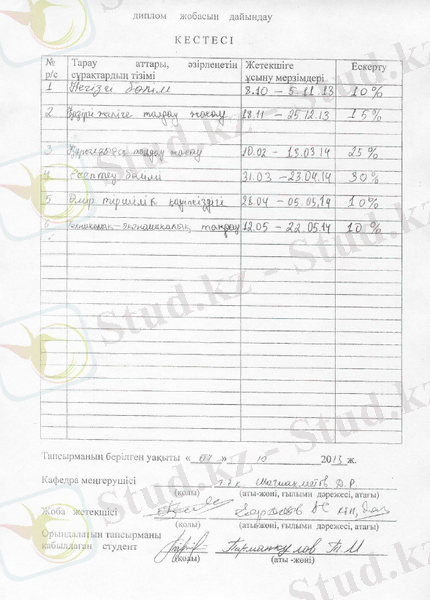 диплом жобасын дайындау
КЕСТЕСІ
№ р/с
Тарау аттары, әзірленетін сұрақтардың тізімі
Жетекшіге ұсыну мерзімдері
Ескерту
1 Негізгі бөлім 8.10 – 5.11.13 10%
2 талдау жасау 18.11 – 25.12.13 15%
3 талдау жасау 10.02 - 13.03.14 25%
4 Есептеу бөлімі 31.03 – 23.04.14 30%
5 Өмір тіршілік қауіпсіздігі 28.04 – 05.05.14 10%
6 Техникалық-экономикалық 12.05 – 22.05.14 10%
Тапсырманың берілген уақыты « » 10 2013 ж.
Кафедра меңгерушісі
(қолы) (аты-жөні, ғылыми дәрежесі, атағы)
Жоба жетекшісі
(қолы) (аты-жөні, ғылыми дәрежесі, атағы)
Орындалатын тапсырманы
қабылдаған студент
(қолы) (аты -жөні)
Stud.kz - Stud.kz